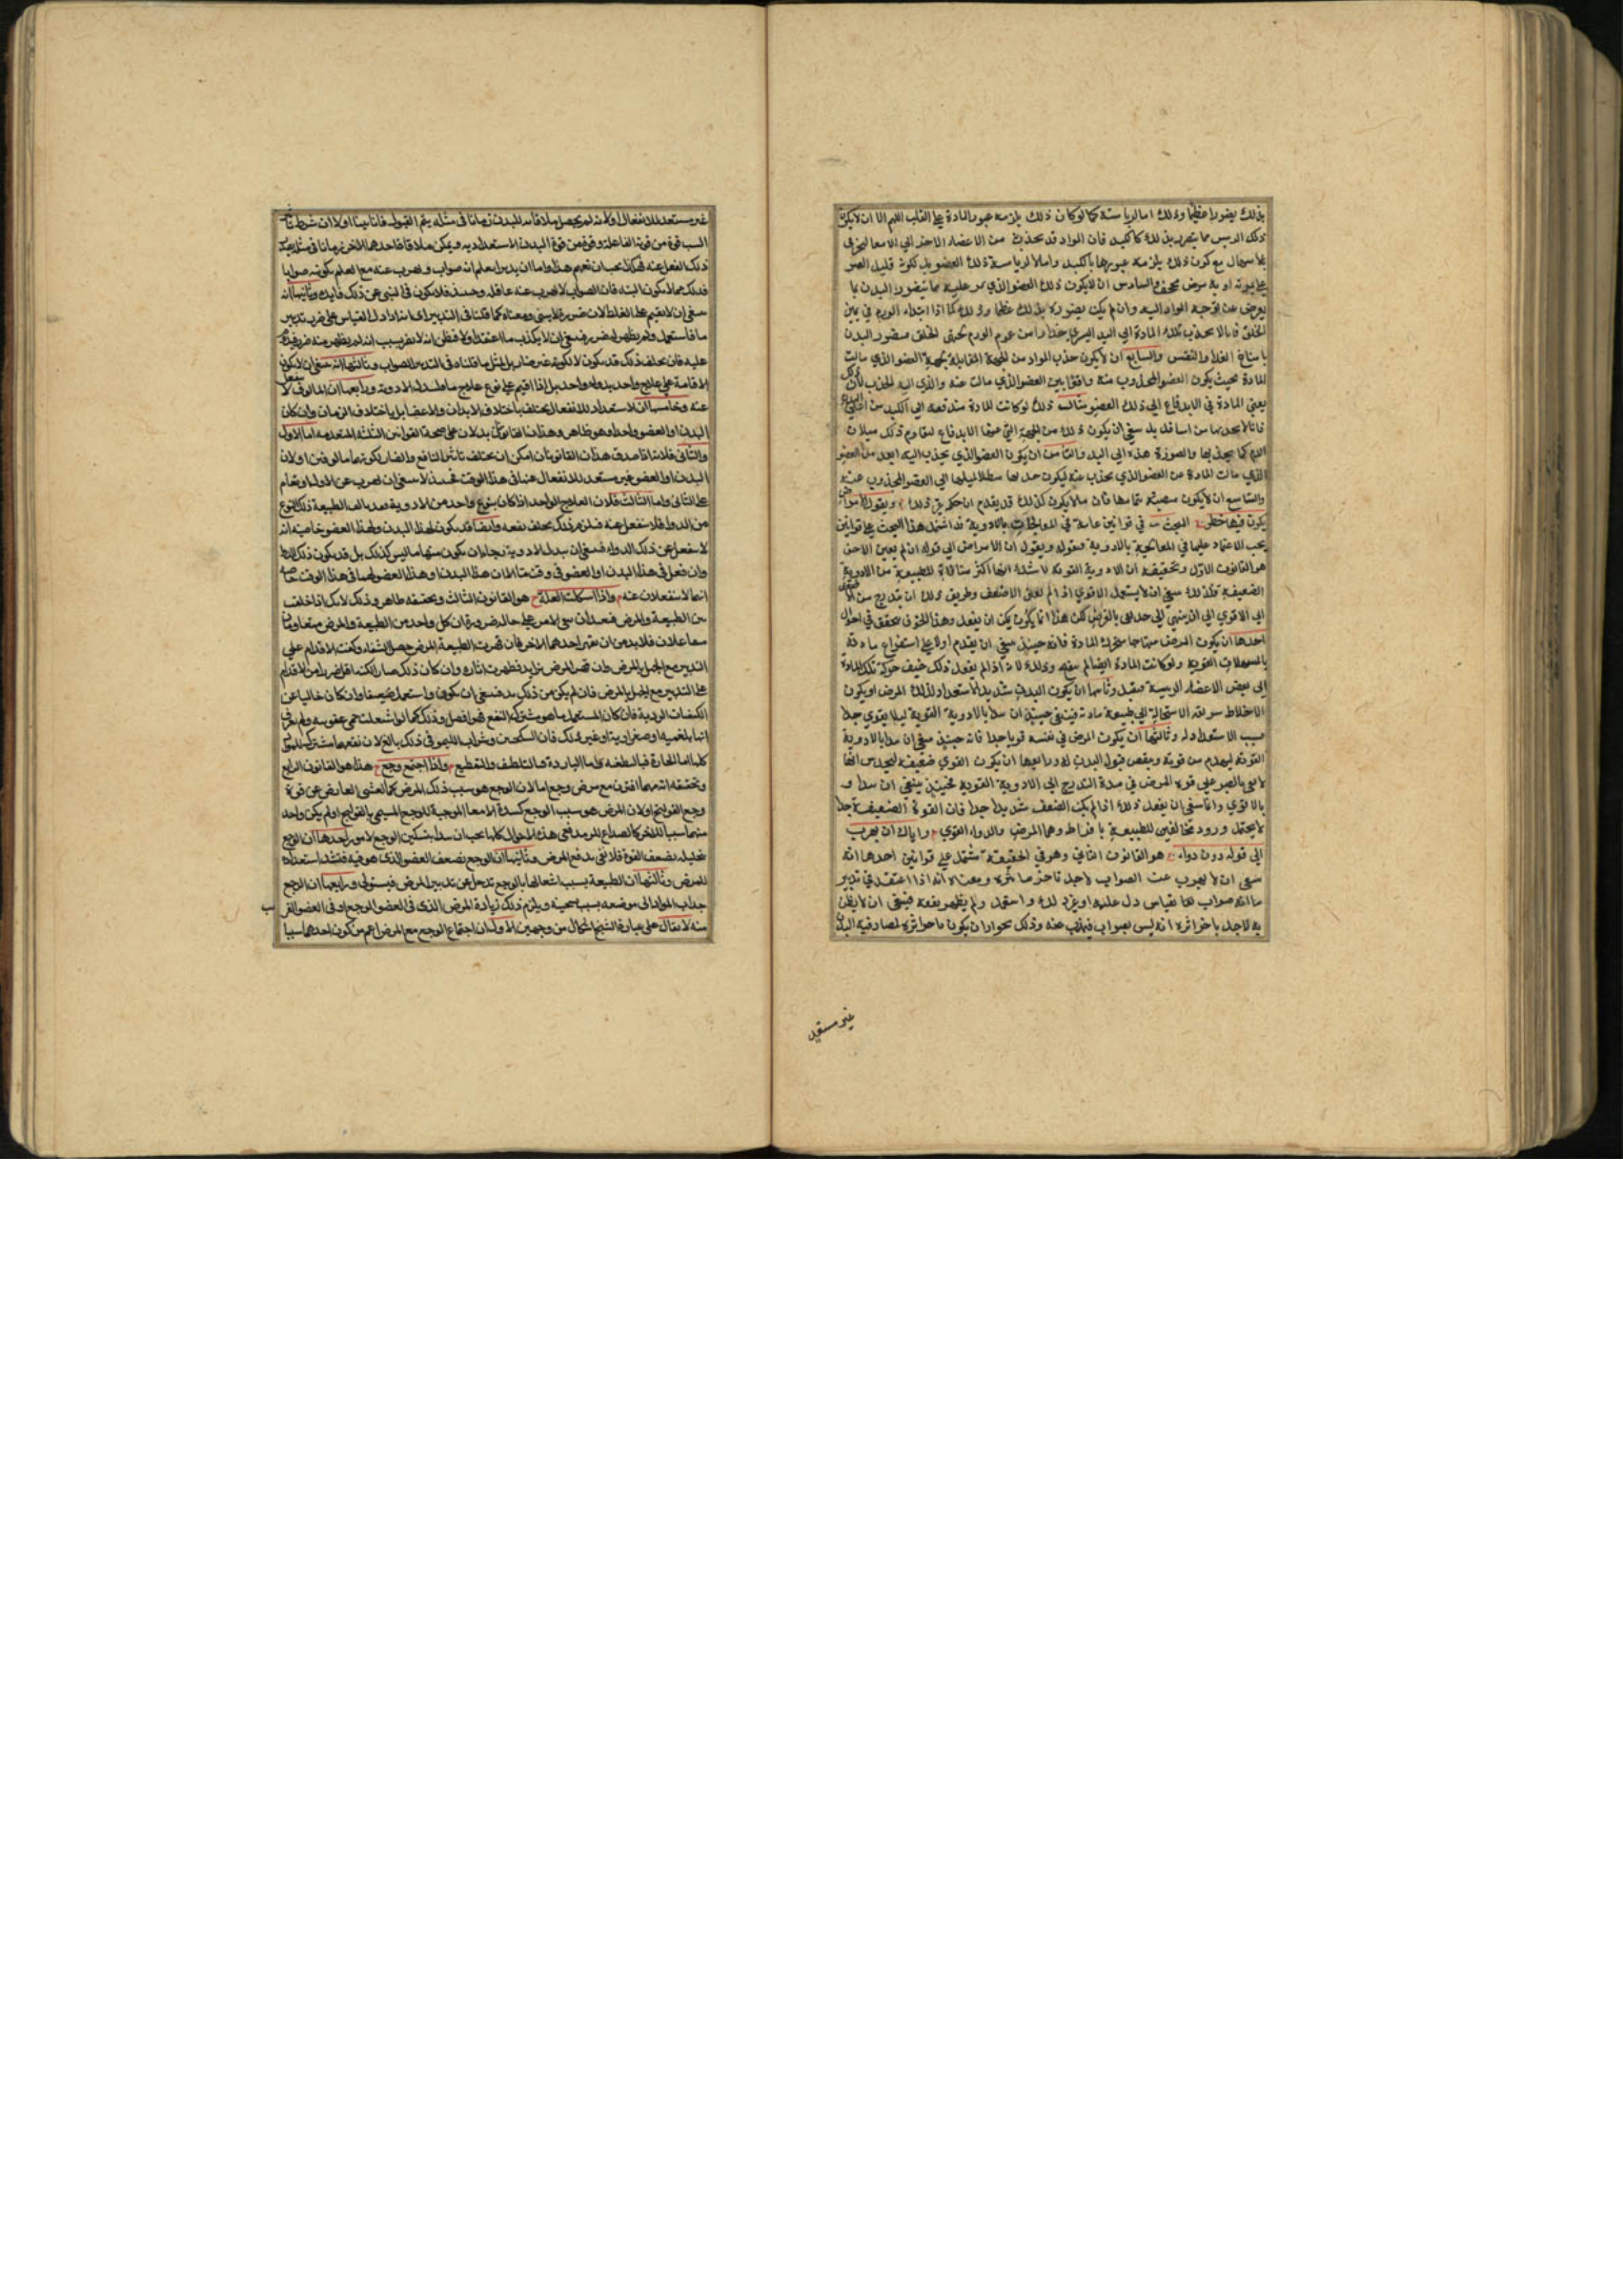 بذلك يضورا عظيما وذلك اما لرياسته كما لو كان ذلك يلزمه عبور المادة على القلب اللهم الا ان لا يكون
ذلك الريس مما يتضرر بذلك كالكبد فان المواد قد تجذب من الاعضاء الاخر الى الامعا ليخرج
بلا سهال مع كون ذلك يلزمه عبورها بالكبد واما لا لرياسة ذلك العضو بل لكونه قليل الصبر
على مروره او به مرض مخوف والسادس ان لا يكون ذلك العضو الذي يمر عليه مما يتضرر البدن بما
يعرض عن توجه المواد اليه وان لم يكن يضوره بذلك عظيما وذلك كما اذا ابتداء الورم في يمين
الحلق فانا لا نجذب تلك المادة الى اليد اليسرى حذرا من عموم الورم لجميع الحلق فيضرر البدن
بامتناع الغذا والنفس والسابع ان لا يكون جذب المواد من الجهة المقابلة لجهة العضو الذي مالت
المادة بحيث يكون العضو المجذوب منه واقعا بين العضو الذي مالت عنه والذي اليه الجذب لان ذلك
يعين المادة في الاندفاع الى ذلك العضو مثاله ذلك لو كانت المادة مندفعة الى الكبد من اعالي البدن
فانا لا نجذبها من اسافل بل ينبغي ان يكون ذلك من الجهة التي عنها الاندفاع ليقاوم ذلك ميلان
الدم كما يجذبها والصورة هذه الى اليد والثامن ان يكون العضو الذي يجذب اليه ابعد من العضو
الذي مالت المادة عن العضو الذي يجذب منه ليكون جذبها مبطلا لميلها الى العضو المجذوب عنه
والتاسع ان لا يكون منصبة بتمامها فان ما لا يكون كذلك قد يقدم ان حكم غير ذلك ويقول الامراض
يكون فيها خطر المبحث في قوانين عامة في المعالجات بالادوية قد اشتمل هذا البحث على قوانين
يجب الاعتماد عليها في المعالجة بالادوية فقوله ويقول ان الامراض الى قوله ان لم يعين الاخف
هو القانون الاول وتحقيقه ان الادوية القوية لا شك انها اكثر منافاة للطبيعة من الادوية
الضعيفة فلذلك ينبغي ان لا يستعمل الاقوى اذا لم يعن الاضعف وطريق ذلك ان يتدرج من الاضعف
الى الاقوى الى ان ينتهي الى حد يفي بالغرض لكن هذا انما يكون يمكن ان يفعل وهذا الخوف يتحقق في احوال
احدها ان يكون المرض مهتاجا متحرك المادة فانه حينئذ ينبغي ان يقدم اولا على استفراغ مادته
بالمسهلات القوية ولو كانت المادة ايضا لم تنضج وذلك لانه اذا لم يفعل ذلك خيف حركة تلك المادة
الى بعض الاعضاء الريسية فيقتل وثانيها ان يكون البدن شديد الاستعداد لذلك المرض او يكون
الاخلاط سريعة الاستحالة الى طبيعة مادته فينبغي حينئذ ان يبدا بالادوية القوية ليلا يقوى جدا
بسبب الاستعداد له وثالثها ان يكون المرض في نفسه قويا جدا فانه حينئذ ينبغي ان يبدا بالادوية
القوية ليهدم من قوته وينقص قبول البدن له ورابعها ان يكون القوى ضعيفة ليحدس انها
لا تفي بالصبر على قوة المرض في مدة التدرج الى الادوية القوية فحينئذ ينبغي ان يبدا
بالاقوى وانما ينبغي ان يفعل ذلك اذا لم يكن الضعف شديدا جدا فان القوة الضعيفة جدا
لا يحتمل ورود مخالفين للطبيعة بافراط وهما المرض والدواء القوي واياك ان يهرب
الى قوله دون دواء هو القانون الثاني وهو في الحقيقة مشتمل على قوانين احدها انه
ينبغي ان لا يهرب عن الصواب لاجل تاخر ما ثره ومعناه انه اذا اعتقد في تدبير
ما انه صواب لها بقياس دل عليه او غير ذلك واستعمل ولم يظهر نفعه فينبغي ان لا يظن
به لاجل تاخر اثره انه ليس بصواب فيهرب عنه وذلك لجواز ان يكون تاخر اثره لمصادفته البدن
غير مستعد
غير مستعد للانفعال او لانه لم يحصل ملاقاته للبدن زمانا في مثله يتم القبول فانا بينا اولا ان شرط تاثير
السبب قوة من قوة الفاعلة وقوة من قوة البدن الاستعدادية ويمكن ملاقاة احدهما الاخر زمانا في مثله يصدر
ذلك الفعل عنه هكذا يجب ان تفهم هذا واما ان يدبر بما يعلم انه صواب ويهرب عنه مع العلم بكونه صوابا
فذلك مما لا يكون البتة فان الصواب لا يهرب عنه عاقل وحينئذ فلا يكون في النهي عن ذلك فايدة وثانيها انه
ينبغي ان لا يقيم على الغلط لان ضرره لا يستبين ومعناه كما قلنا في التدبير اي انه اذا دل القياس على ضرر تدبير
ما فاستعمل ولم يظهر له ضرر فينبغي ان لا يكذب ما اعتقد اولا فتظن انه لا يضر بسبب انه لم يظهر منه ضرر فيدام
عليه فان تخلف ذلك قد يكون لا لكونه غير ضار بل لمثل ما قلناه في التدبير الصواب وثالثها انه ينبغي ان لا يكون
الاقامة على علاج واحد بدواء واحد بل اذا اقيم على نوع علاج ما فليبدل الادوية ورابعها ان المالوف لا ينفعل
عنه وخامسها ان الاستعداد للانفعال يختلف باختلاف الابدان والاعضا بل باختلاف الزمان وان كان
البدن او العضو واحدا وهو ظاهر وهذان القانونان يدلان على صحة القوانين الثلثة المتقدمة اما الاول
والثاني فلانه اذا صدق هذان القانونان امكن ان يختلف تاثير النافع والضار لكونهما مالوفين او لان
البدن او العضو غير مستعد للانفعال عنه في هذا الوقت فحينئذ لا ينبغي ان يهرب عن الاول او يقام
على الثاني واما الثالث فلان العلاج الواحد اذا كان بنوع واحد من الادوية فقد يالف الطبيعة ذلك النوع
من الدواء فلا ينفعل عنه فيلزم ذلك تخلف نفعه وايضا قد يكون لهذا البدن ولهذا العضو خاصية انه
لا ينفعل عن ذلك الدواء فينبغي ان يبدل الادوية رجاء ان يكون منها ما ليس كذلك بل قد يكون ذلك الدواء
وان فعل في هذا البدن او العضو في وقت ما الا ان هذا البدن او هذا العضو لهما في هذا الوقت خاصة
انهما لا ينفعلان عنه واذا اشكلت العلة هو القانون الثالث وتحقيقه ظاهر وذلك لانك اذا خليت
بين الطبيعة والمرض فبعد ان تبين الامر على حاله ضرورة ان كل واحد من الطبيعة والمرض متعاوقان
متفاعلان فلا بد من ان يقهر احدهما الاخر فان قهرت الطبيعة المرض حصل الشفاء وكفت الاقدام على
التدبير مع الجهل بالمرض وان قهر المرض تزايد فظهرت اثاره وان كان ذلك ضارا لكنه اقل ضررا من الاقدام
على التدبير مع الجهل بالمرض فان لم يكن من ذلك بد فينبغي ان يكون ما يستعمل ضعيفا وان كان خاليا عن
الكيفيات الردية فان كان المستعمل ما هو مشترك النفع فهو افضل وذلك كما لو اشتعلت حمى عفونية ولم يعرف
انها بلغمية او صفراوية او غير ذلك فان السكنجبين وشراب الليمو في ذلك بالغ لان نفعهما مشترك للمواد
كلها اما الحارة فبالتطفية واما الباردة فبالتلطيف والتقطيع واذا اجتمع وجع هذا هو القانون الرابع
وتحقيقه انه مهما اقترن مع مرض وجع اما لان الوجع هو سبب ذلك المرض كما الغشي العارض عن قوة
وجع القولنج او لان المرض هو سبب الوجع كسدة الامعا الموجبة للوجع المسمى بالقولنج او لم يكن واحد
منهما سببا للاخر كالصداع للرمد ففي هذه الاحوال كلها يجب ان يبدا بتسكين الوجع لامور احدها ان الوجع
بتحليله يضعف القوة فلا تفي بدفع المرض وثانيها ان الوجع يضعف العضو الذي هو فيه فيشتد استعداده
للمرض وثالثها ان الطبيعة بسبب اشتغالها بالوجع تدخل عن تدبير المرض فيستولي ورابعها ان الوجع
جذاب المواد الى موضعه بسبب تسخينه ويلزم ذلك زيادة المرض الذي في العضو الوجع او في العضو القريب
منه لا يقال على عبارة الشيخ اشكال من وجهين الاول ان اجتماع الوجع مع المرض اعم من كون احدهما سببا